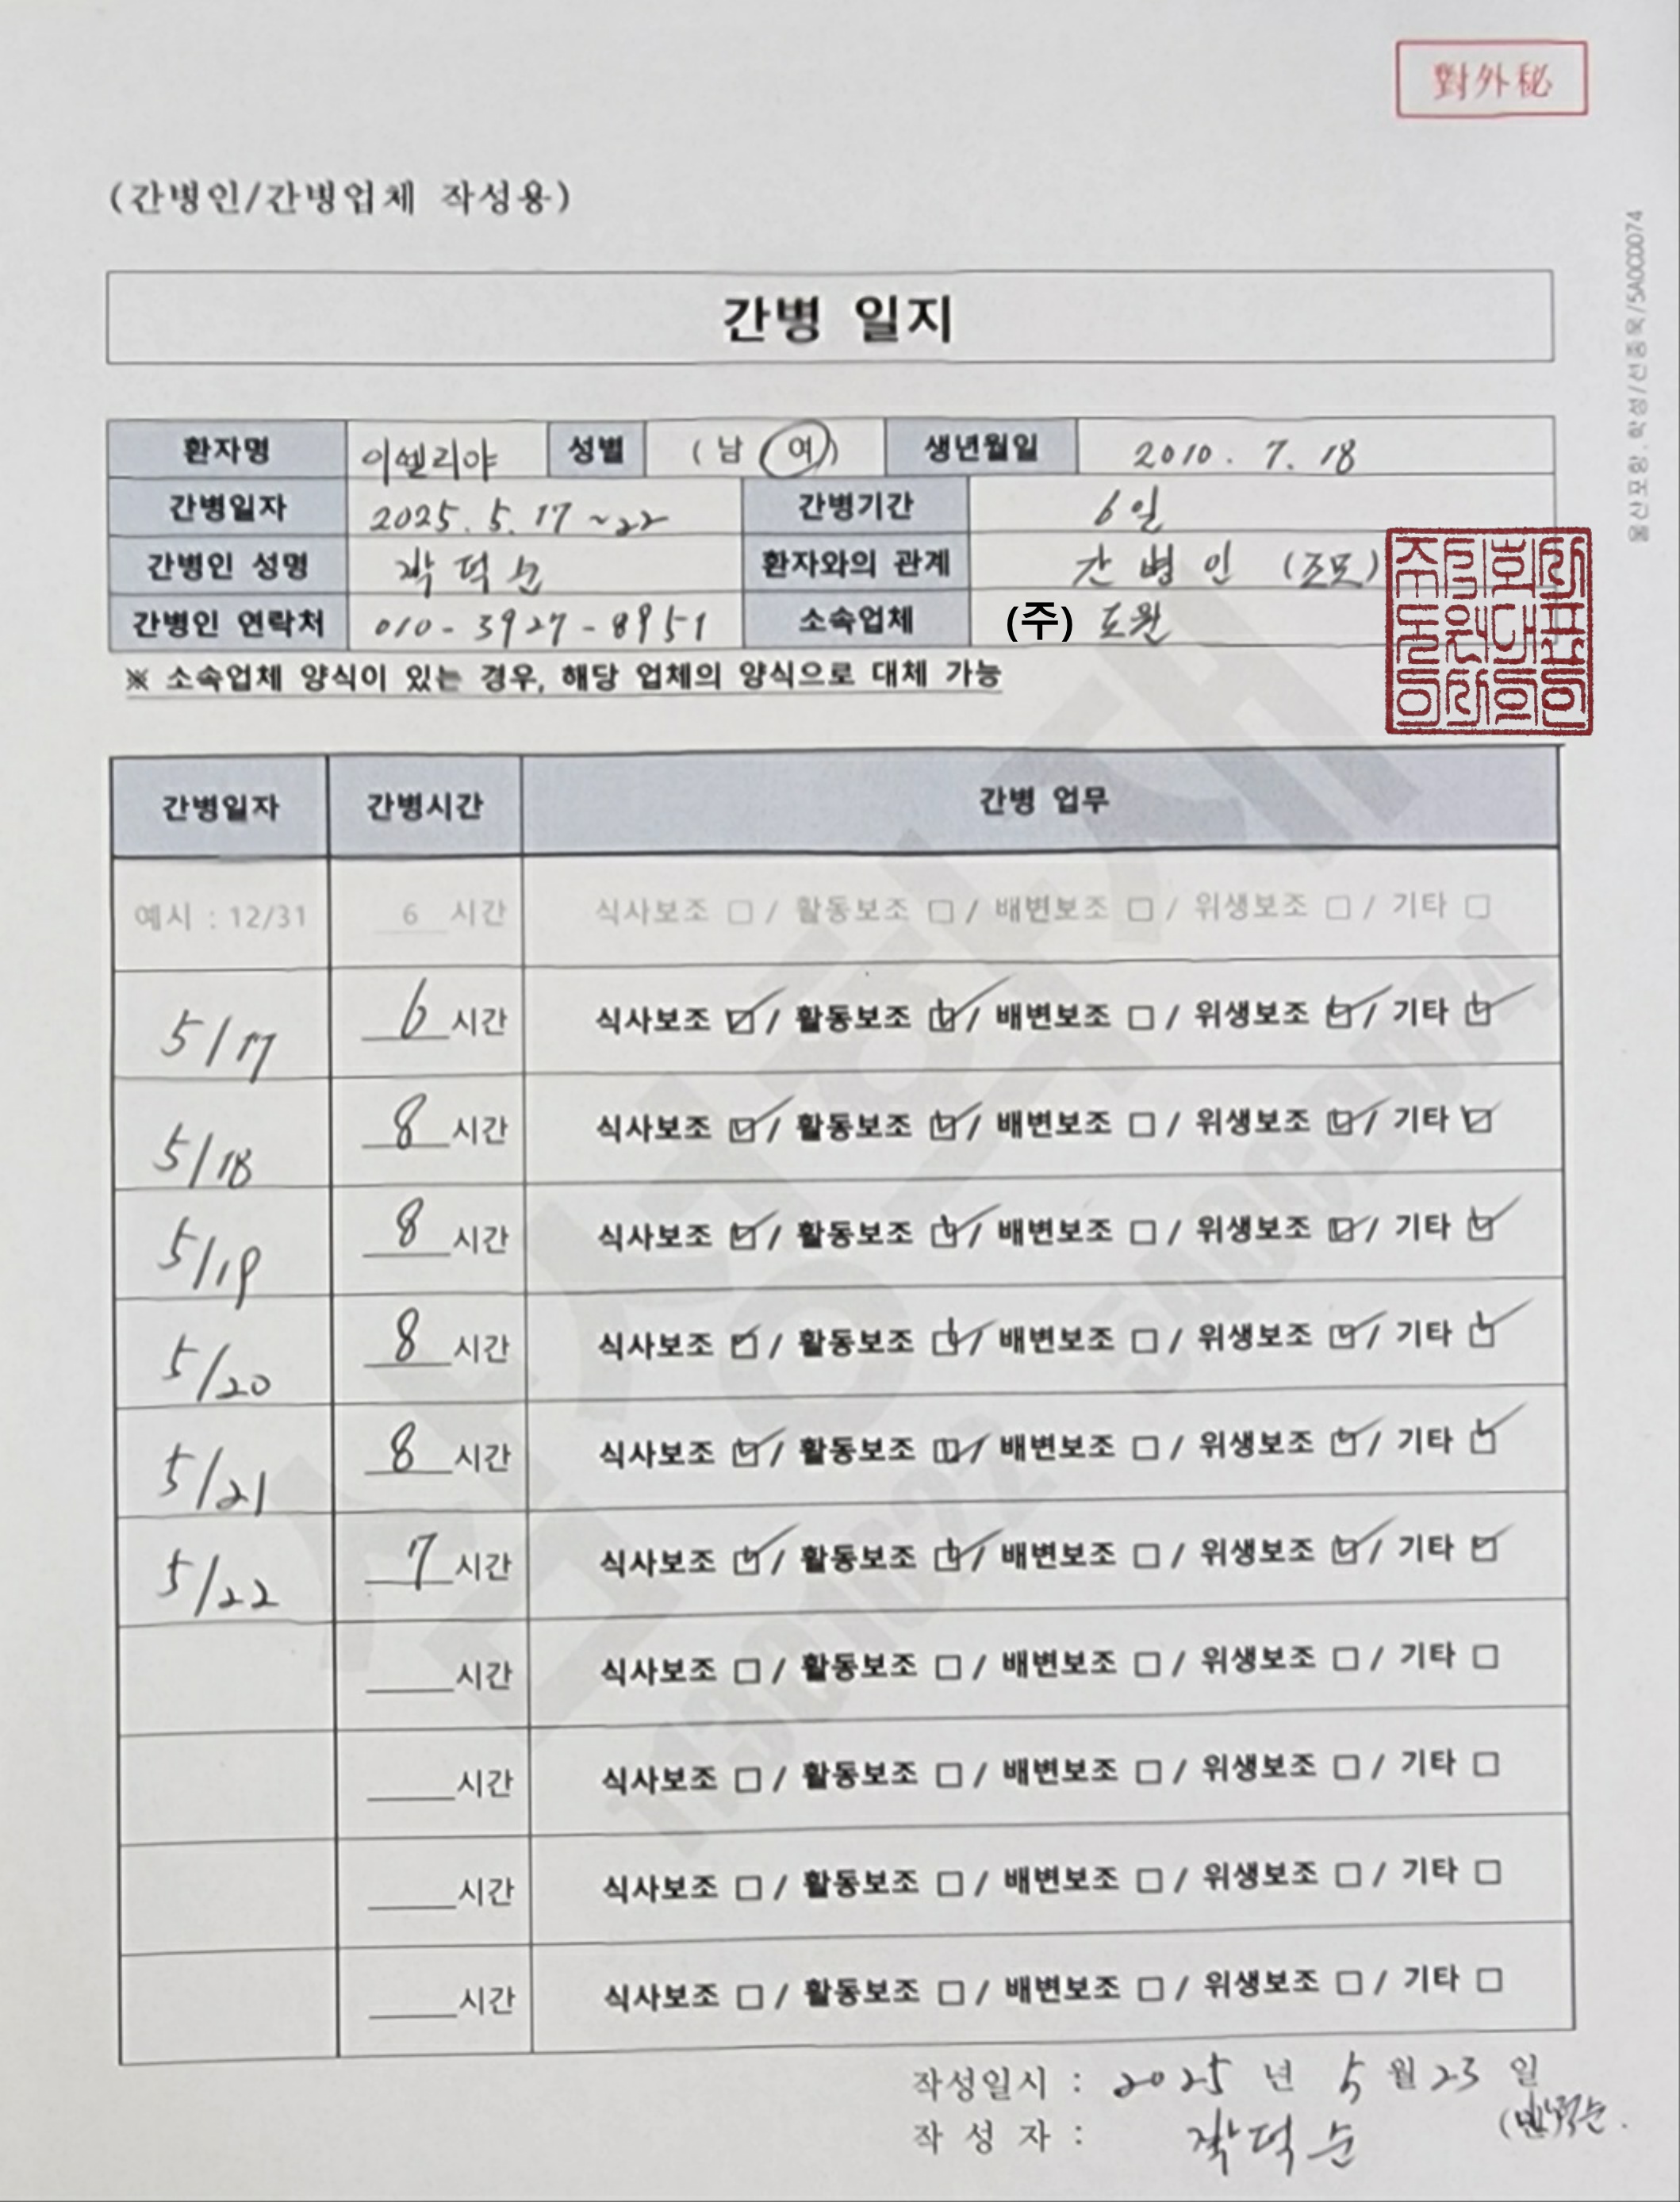 對外秘
(간병인/간병업체 작성용)
울산포항.학성/선종욱/5A0C0074
간병 일지
환자명 이쎌리야 성별 ( 남 여) 생년월일 2010. 7. 18
간병일자 2025. 5. 17 ~22 간병기간 6일
간병인 성명 곽덕순 환자와의 관계 간병인 (조모)
간병인 연락처 010-3927-8951 소속업체 (주) 도원
※ 소속업체 양식이 있는 경우, 해당 업체의 양식으로 대체 가능
간병일자 간병시간 간병 업무
예시 : 12/31 6 시간 식사보조 □ / 활동보조 □ / 배변보조 □ / 위생보조 □ / 기타 □
5/17 6 시간 식사보조 ☑ / 활동보조 ☑ / 배변보조 □ / 위생보조 ☑ / 기타 ☑
5/18 8 시간 식사보조 ☑ / 활동보조 ☑ / 배변보조 □ / 위생보조 ☑ / 기타 ☑
5/19 8 시간 식사보조 ☑ / 활동보조 ☑ / 배변보조 □ / 위생보조 ☑ / 기타 ☑
5/20 8 시간 식사보조 ☑ / 활동보조 ☑ / 배변보조 □ / 위생보조 ☑ / 기타 ☑
5/21 8 시간 식사보조 ☑ / 활동보조 ☑ / 배변보조 □ / 위생보조 ☑ / 기타 ☑
5/22 7 시간 식사보조 ☑ / 활동보조 ☑ / 배변보조 □ / 위생보조 ☑ / 기타 ☑
시간 식사보조 □ / 활동보조 □ / 배변보조 □ / 위생보조 □ / 기타 □
시간 식사보조 □ / 활동보조 □ / 배변보조 □ / 위생보조 □ / 기타 □
시간 식사보조 □ / 활동보조 □ / 배변보조 □ / 위생보조 □ / 기타 □
시간 식사보조 □ / 활동보조 □ / 배변보조 □ / 위생보조 □ / 기타 □
삼성화재
작성일시 : 2025 년 5 월 23 일
작 성 자 : 곽덕순